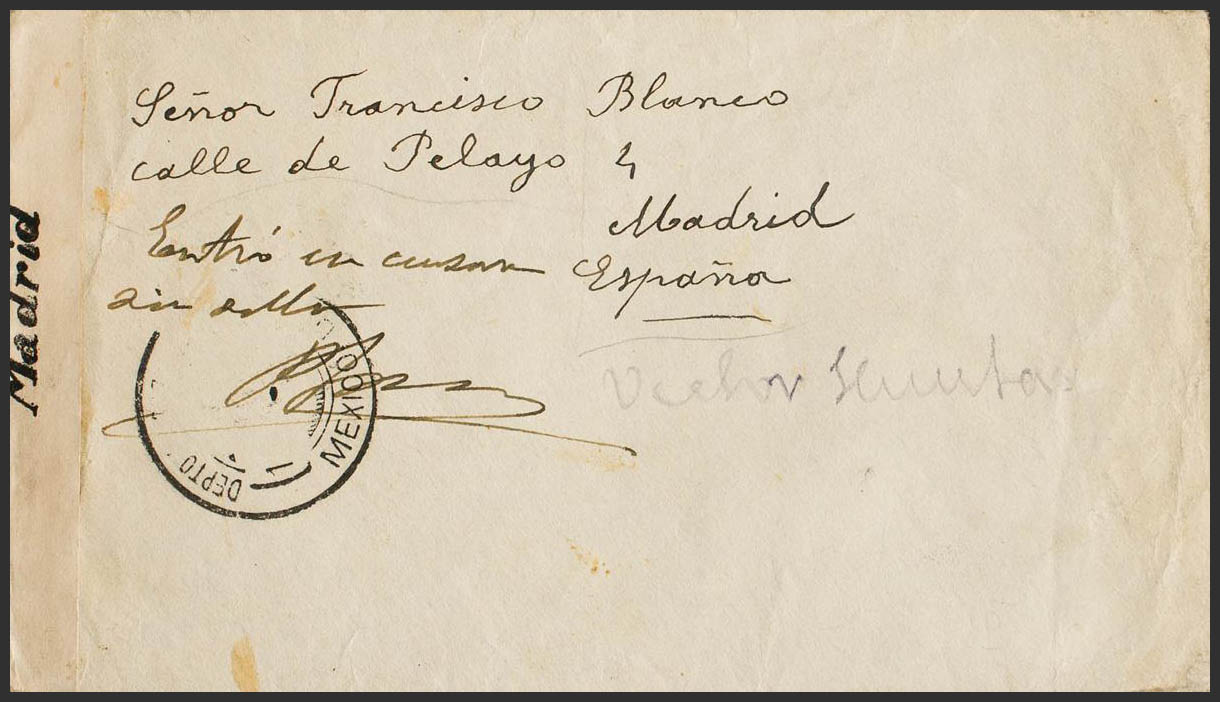 Señor Francisco Blanco
calle de Pelayo 4
Madrid
España
Entró en censura
sin sello
MEXICO
DEPTO
Madrid